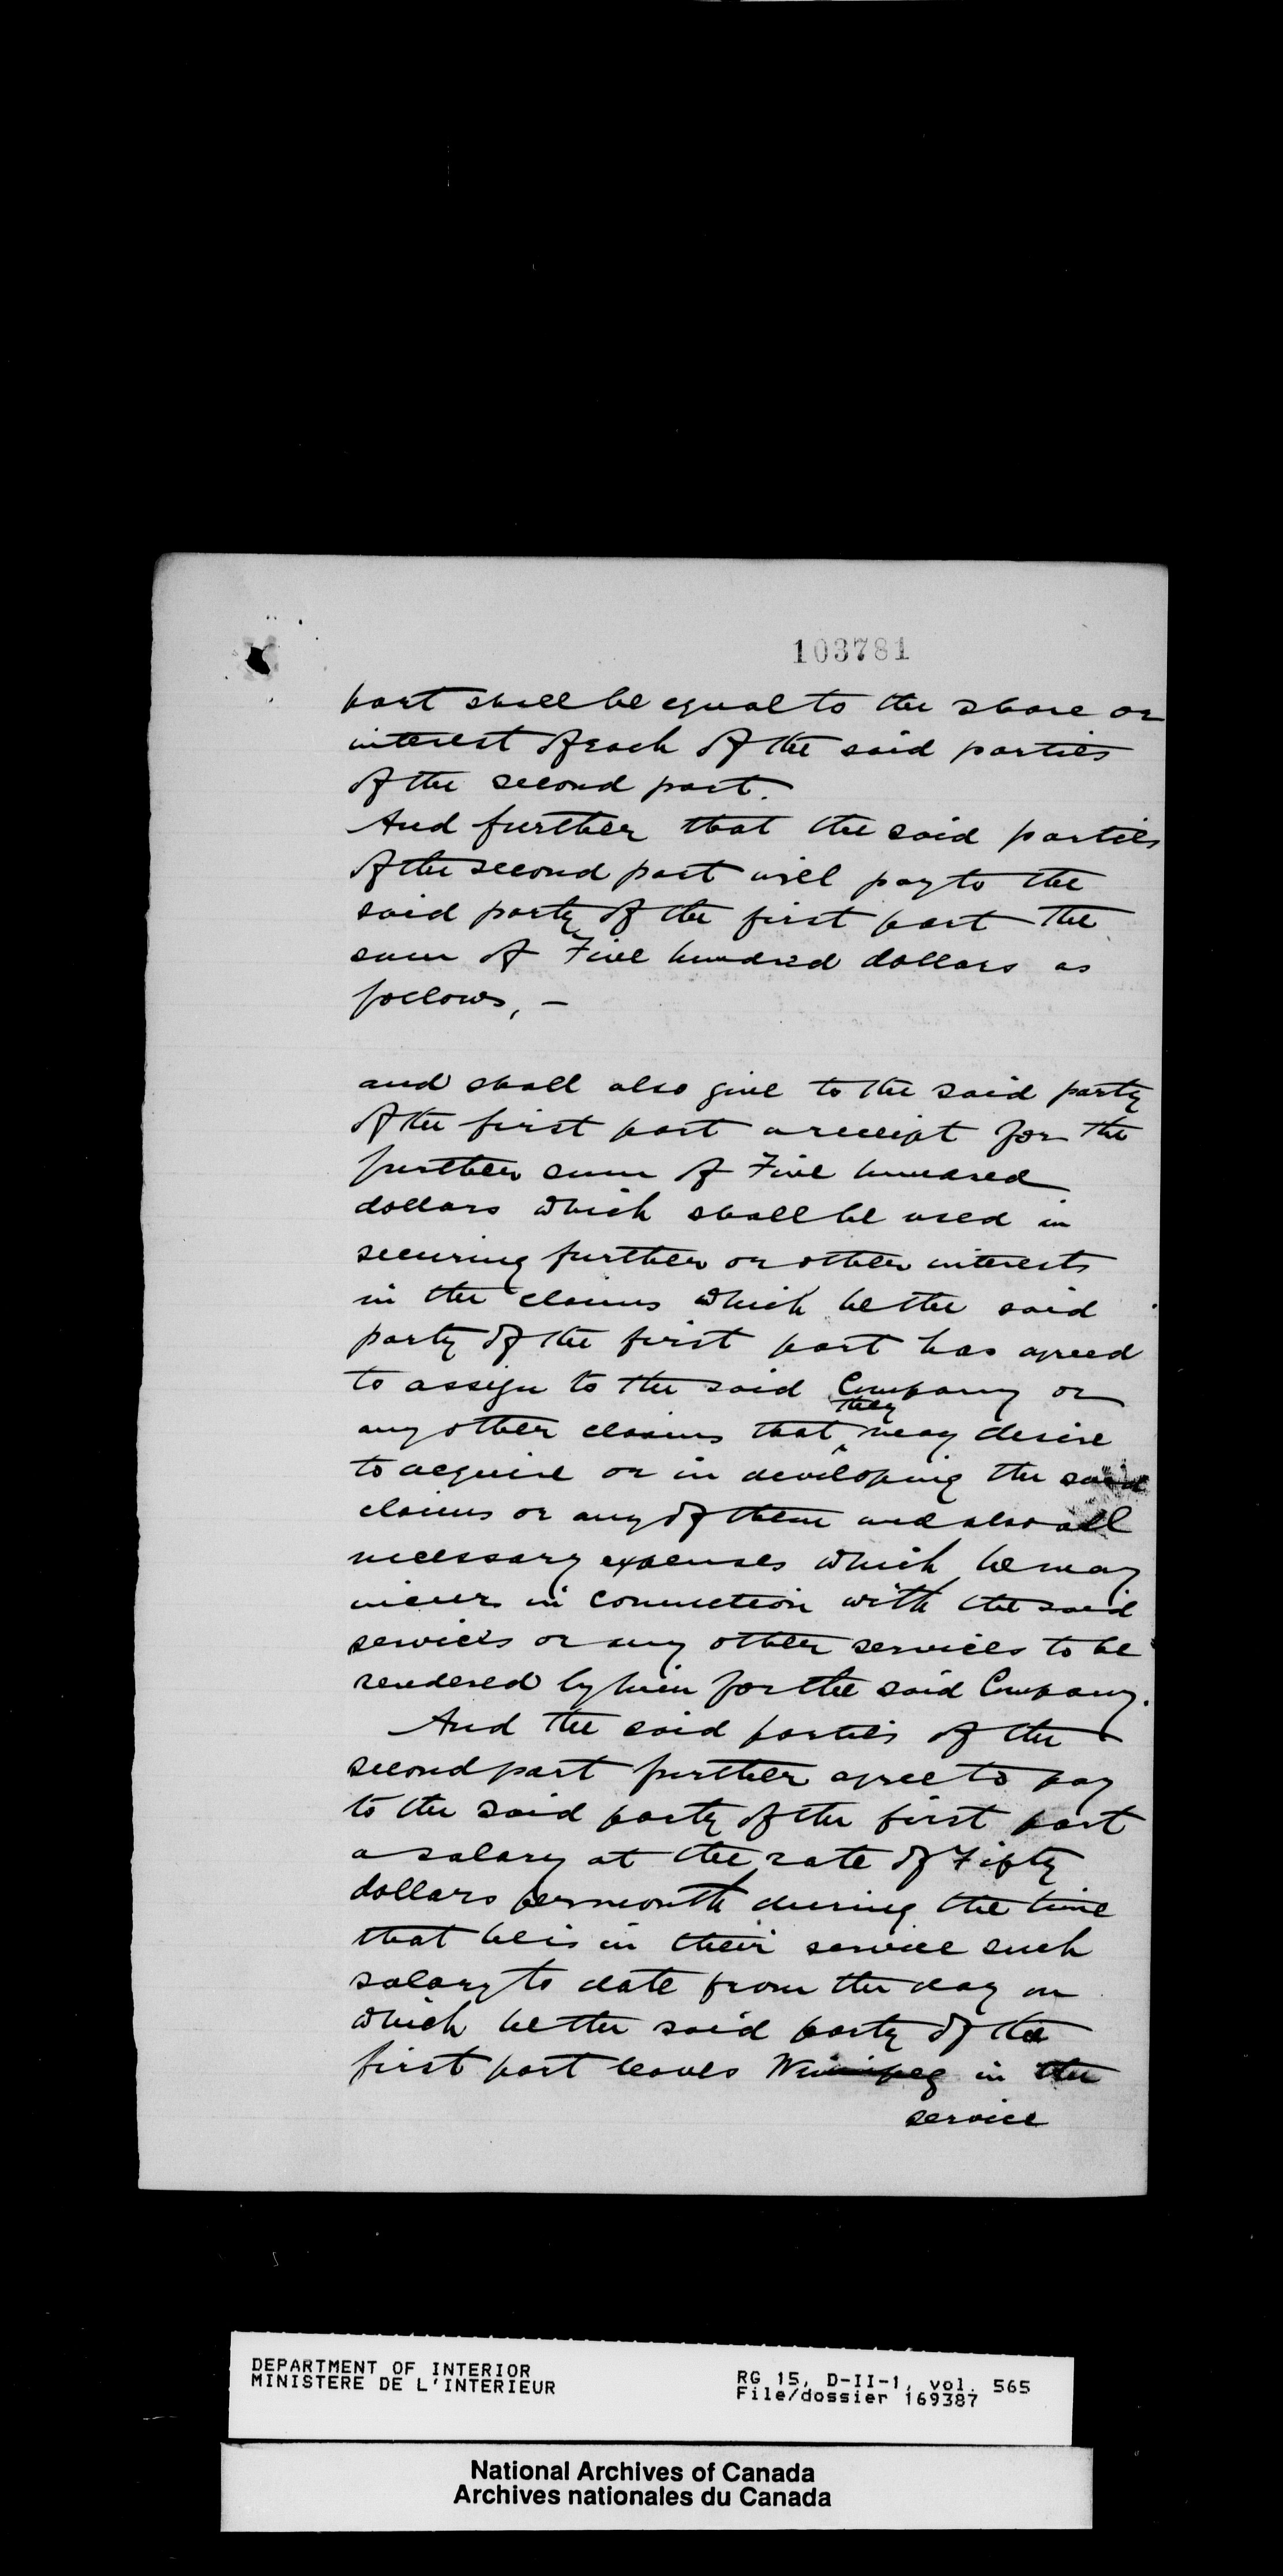 103781
part shall be equal to the share or
interest of each of the said parties
of the second part.
And further that the said parties
of the second part will pay to the
said party of the first part the
sum of Five hundred dollars as
follows, –
and shall also give to the said party
of the first part a receipt for the
further sum of Five hundred
dollars which shall be used in
securing further or other interests
in the claims which he the said
party of the first part has agreed
to assign to the said Company or
they
any other claims that ^ may desire
to acquire or in developing the said
claims or any of them and also all
necessary expenses which he may
incur in connection with the said
services or any other services to be
rendered by him for the said Company.
And the said parties of the
second part further agree to pay
to the said party of the first part
a salary at the rate of Fifty
dollars per month during the time
that he is in their service such
salary to date from the day on
which he the said party of the
first part leaves Winnipeg in the
service
DEPARTMENT OF INTERIOR
MINISTERE DE L'INTERIEUR
RG 15, D-II-1, vol. 565
File/dossier 169387
National Archives of Canada
Archives nationales du Canada